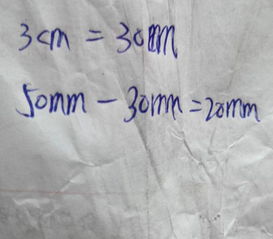 3cm = 30mm
50mm - 30mm = 20mm